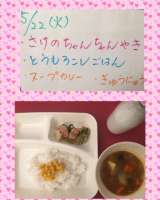 5/22(火)
・さけのちゃんちゃんやき
・とうもろこしごはん
・スープカレー ・ぎゅうにゅう